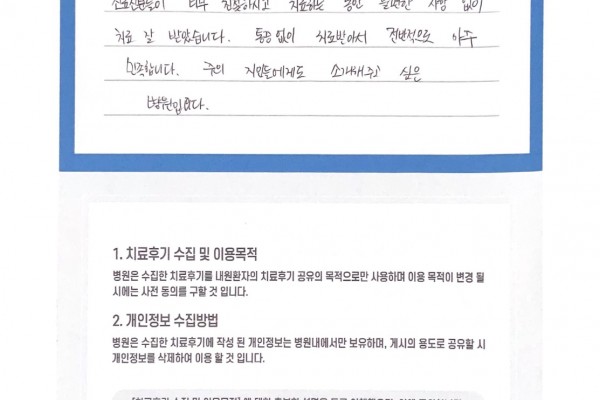 너무 친절하시고 치료하는 동안 불편한 사항 없이
치료 잘 받았습니다. 통증 없이 치료받아서 전반적으로 아주
만족합니다. 주위 지인들에게도 소개해주고 싶은
병원입니다.
1. 치료후기 수집 및 이용목적
병원은 수집한 치료후기를 내원환자의 치료후기 공유의 목적으로만 사용하며 이용 목적이 변경 될
시에는 사전 동의를 구할 것 입니다.
2. 개인정보 수집방법
병원은 수집한 치료후기에 작성 된 개인정보는 병원내에서만 보유하며, 게시의 용도로 공유할 시
개인정보를 삭제하여 이용 할 것 입니다.